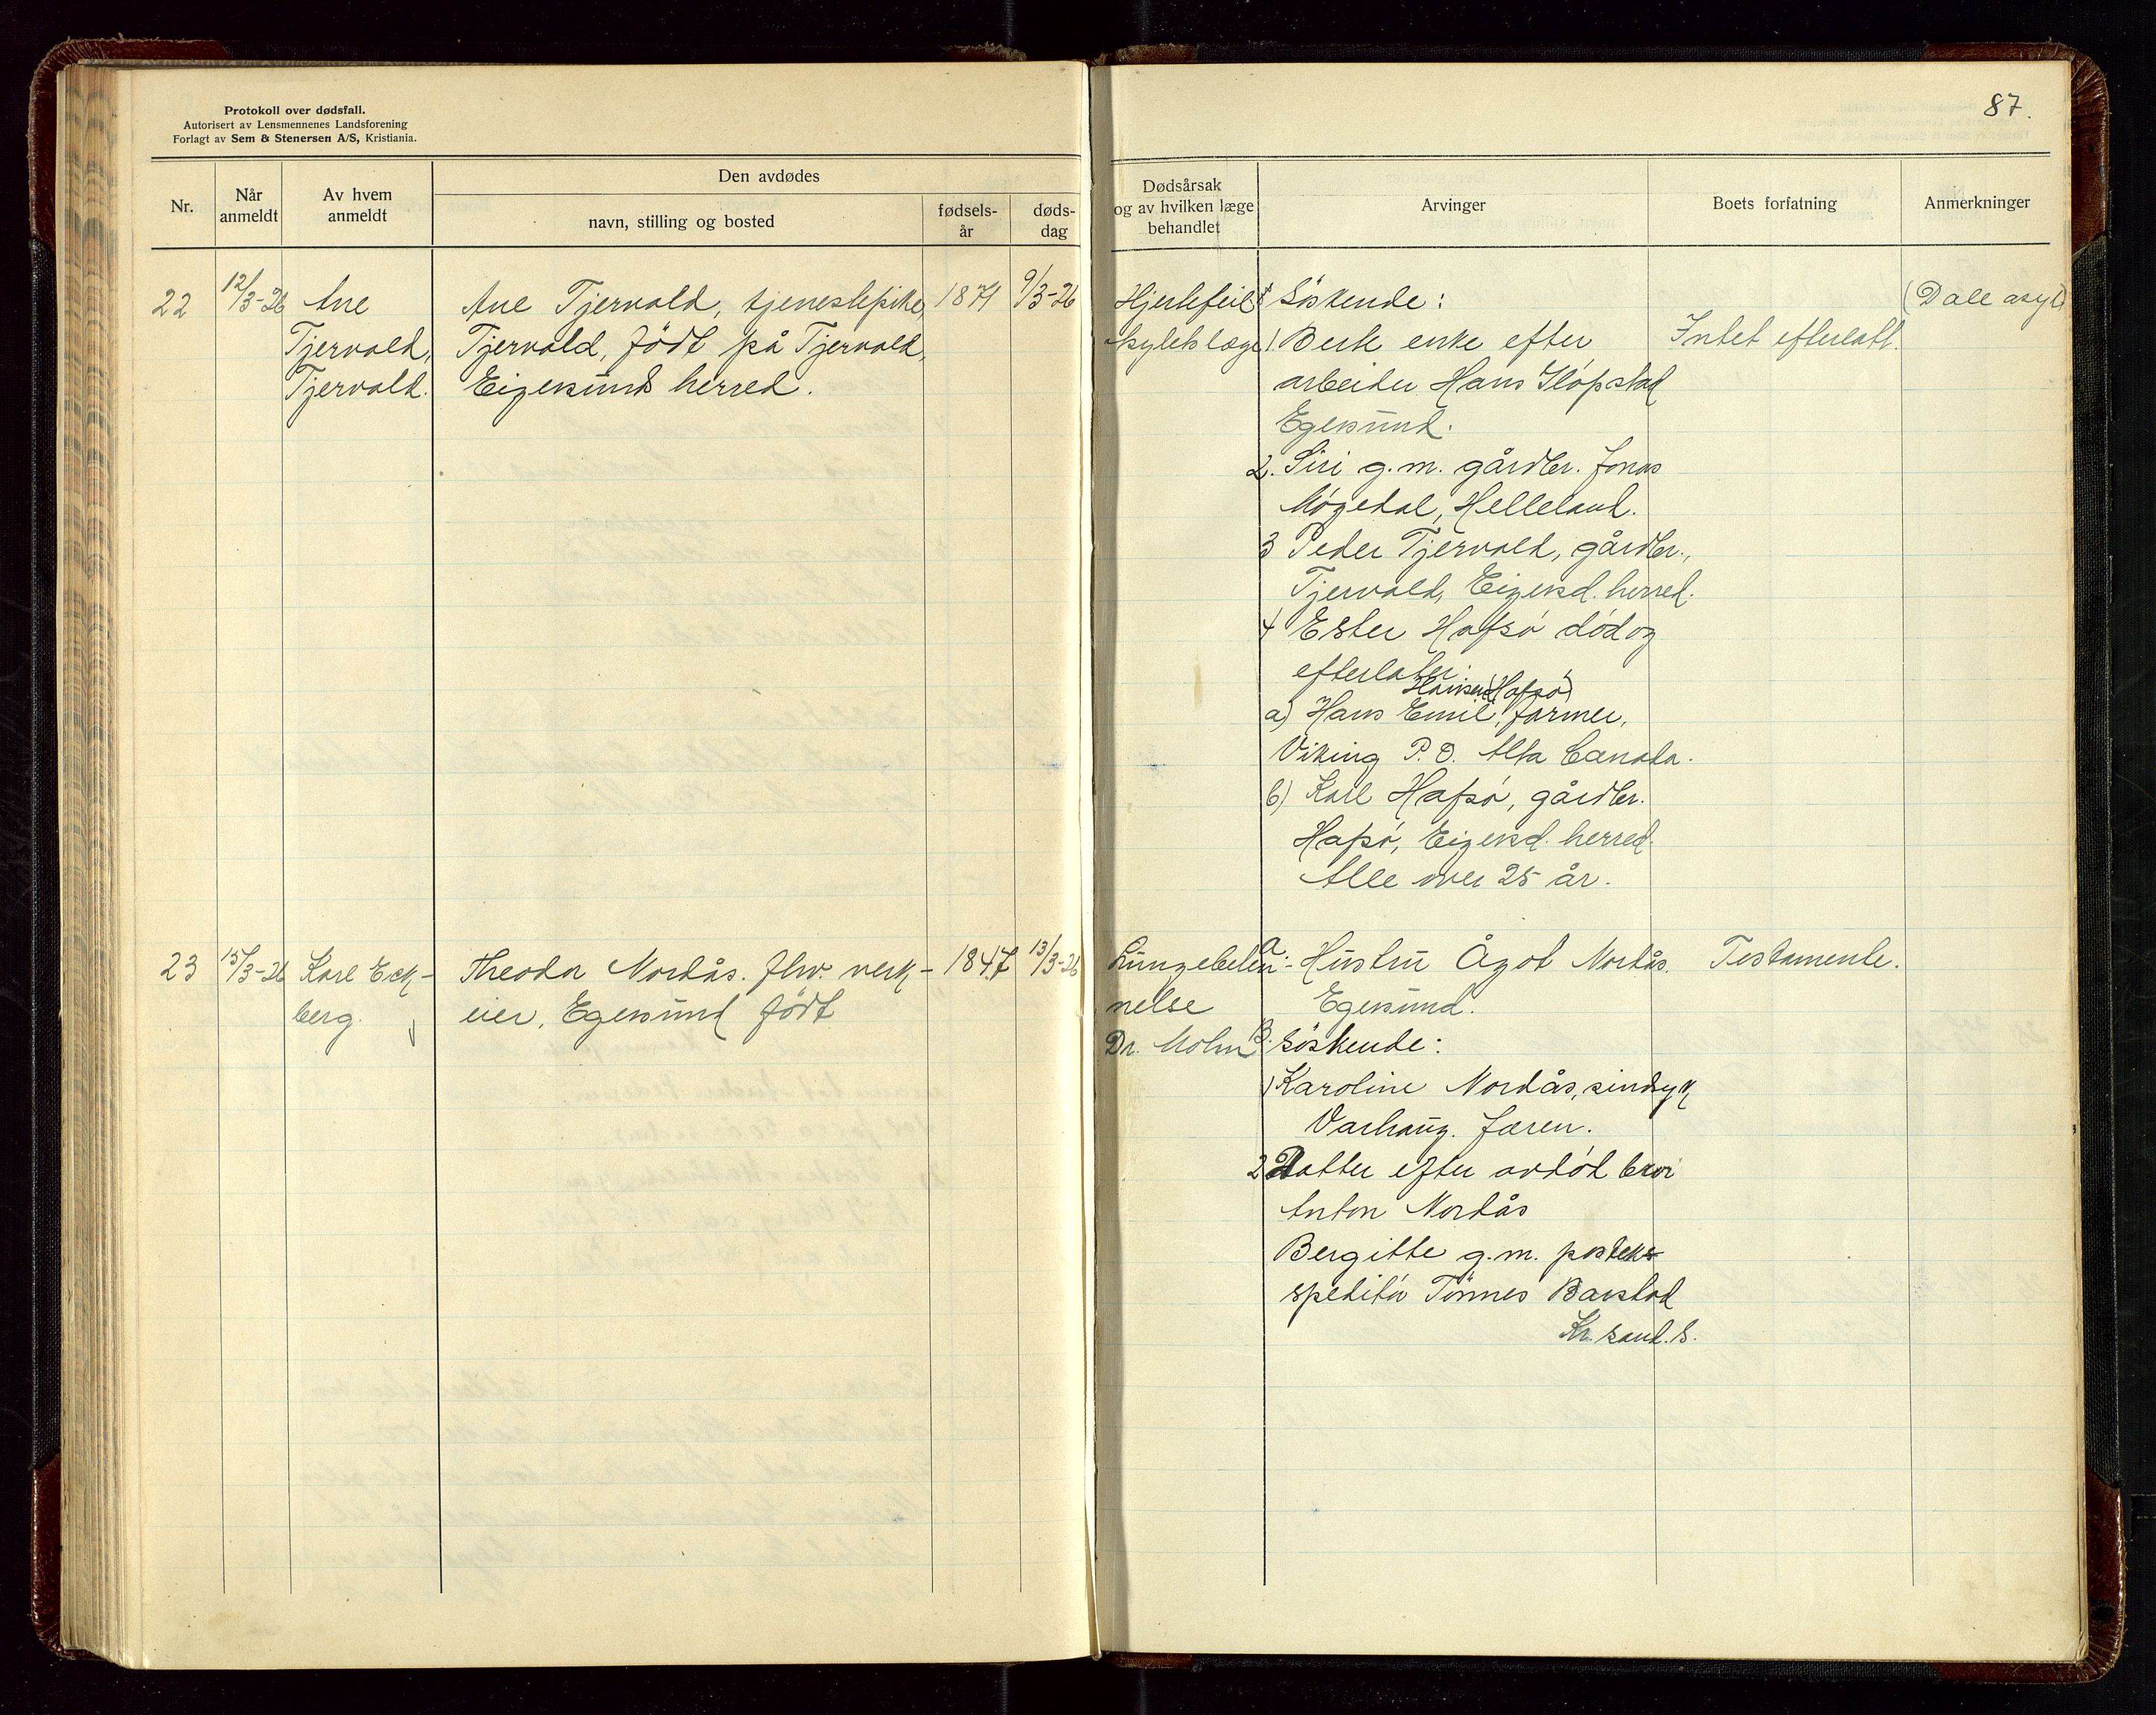 Protokoll over dødsfall.
Autorisert av Lensmennenes Landsforening
Forlagt av Sem & Stenersen A/S, Kristiania.
87.
Nr.
Når anmeldt
Av hvem anmeldt
Den avdødes
navn, stilling og bosted
fødsels-år
døds-dag
Dødsårsak
og av hvilken læge
behandlet
Arvinger
Boets forfatning
Anmerkninger
22
12/3-26
Ane
Tjervald,
Tjervald.
Ane Tjervald, tjenestepike,
Tjervald, født på Tjervald,
Eigersunds herred.
1871
9/3-26
Hjertefeil
Søskende:
1) Berte enke efter
arbeider Hans Fløpstad
Egersund.
2. Siri g.m. gårdbr. Jonas
Møgedal, Helleland.
3 Peder Tjervald, gårdbr.,
Tjervald, Eigersd. herred.
4 Ester Hafsø død og
efterlater:
Hansen (Hafsø)
a) Hans Emil, farmer,
Viking P.O. Alta Canada.
b) Karl Hafsø, gårdbr.
Hafsø, Eigersd. herred.
Alle over 25 år.
Intet efterlatt.
(Dale asyl)
23
15/3-26
Karl Eck-
berg.
Theodor Nordås. fhv. verk-
eier, Egersund født
1847
13/3-26
Lungebeten-
nelse
Dr. Mohn
A. Hustru Ågot Nordås.
Egersund.
B. Søskende:
1) Karoline Nordås, sindsyk
Varhaug. Jæren.
2 Datter efter avdød bror
Anton Nordås
Bergitte g.m. posteks-
speditør Tønnes Barstad
Kr. sand. S.
Testamente.